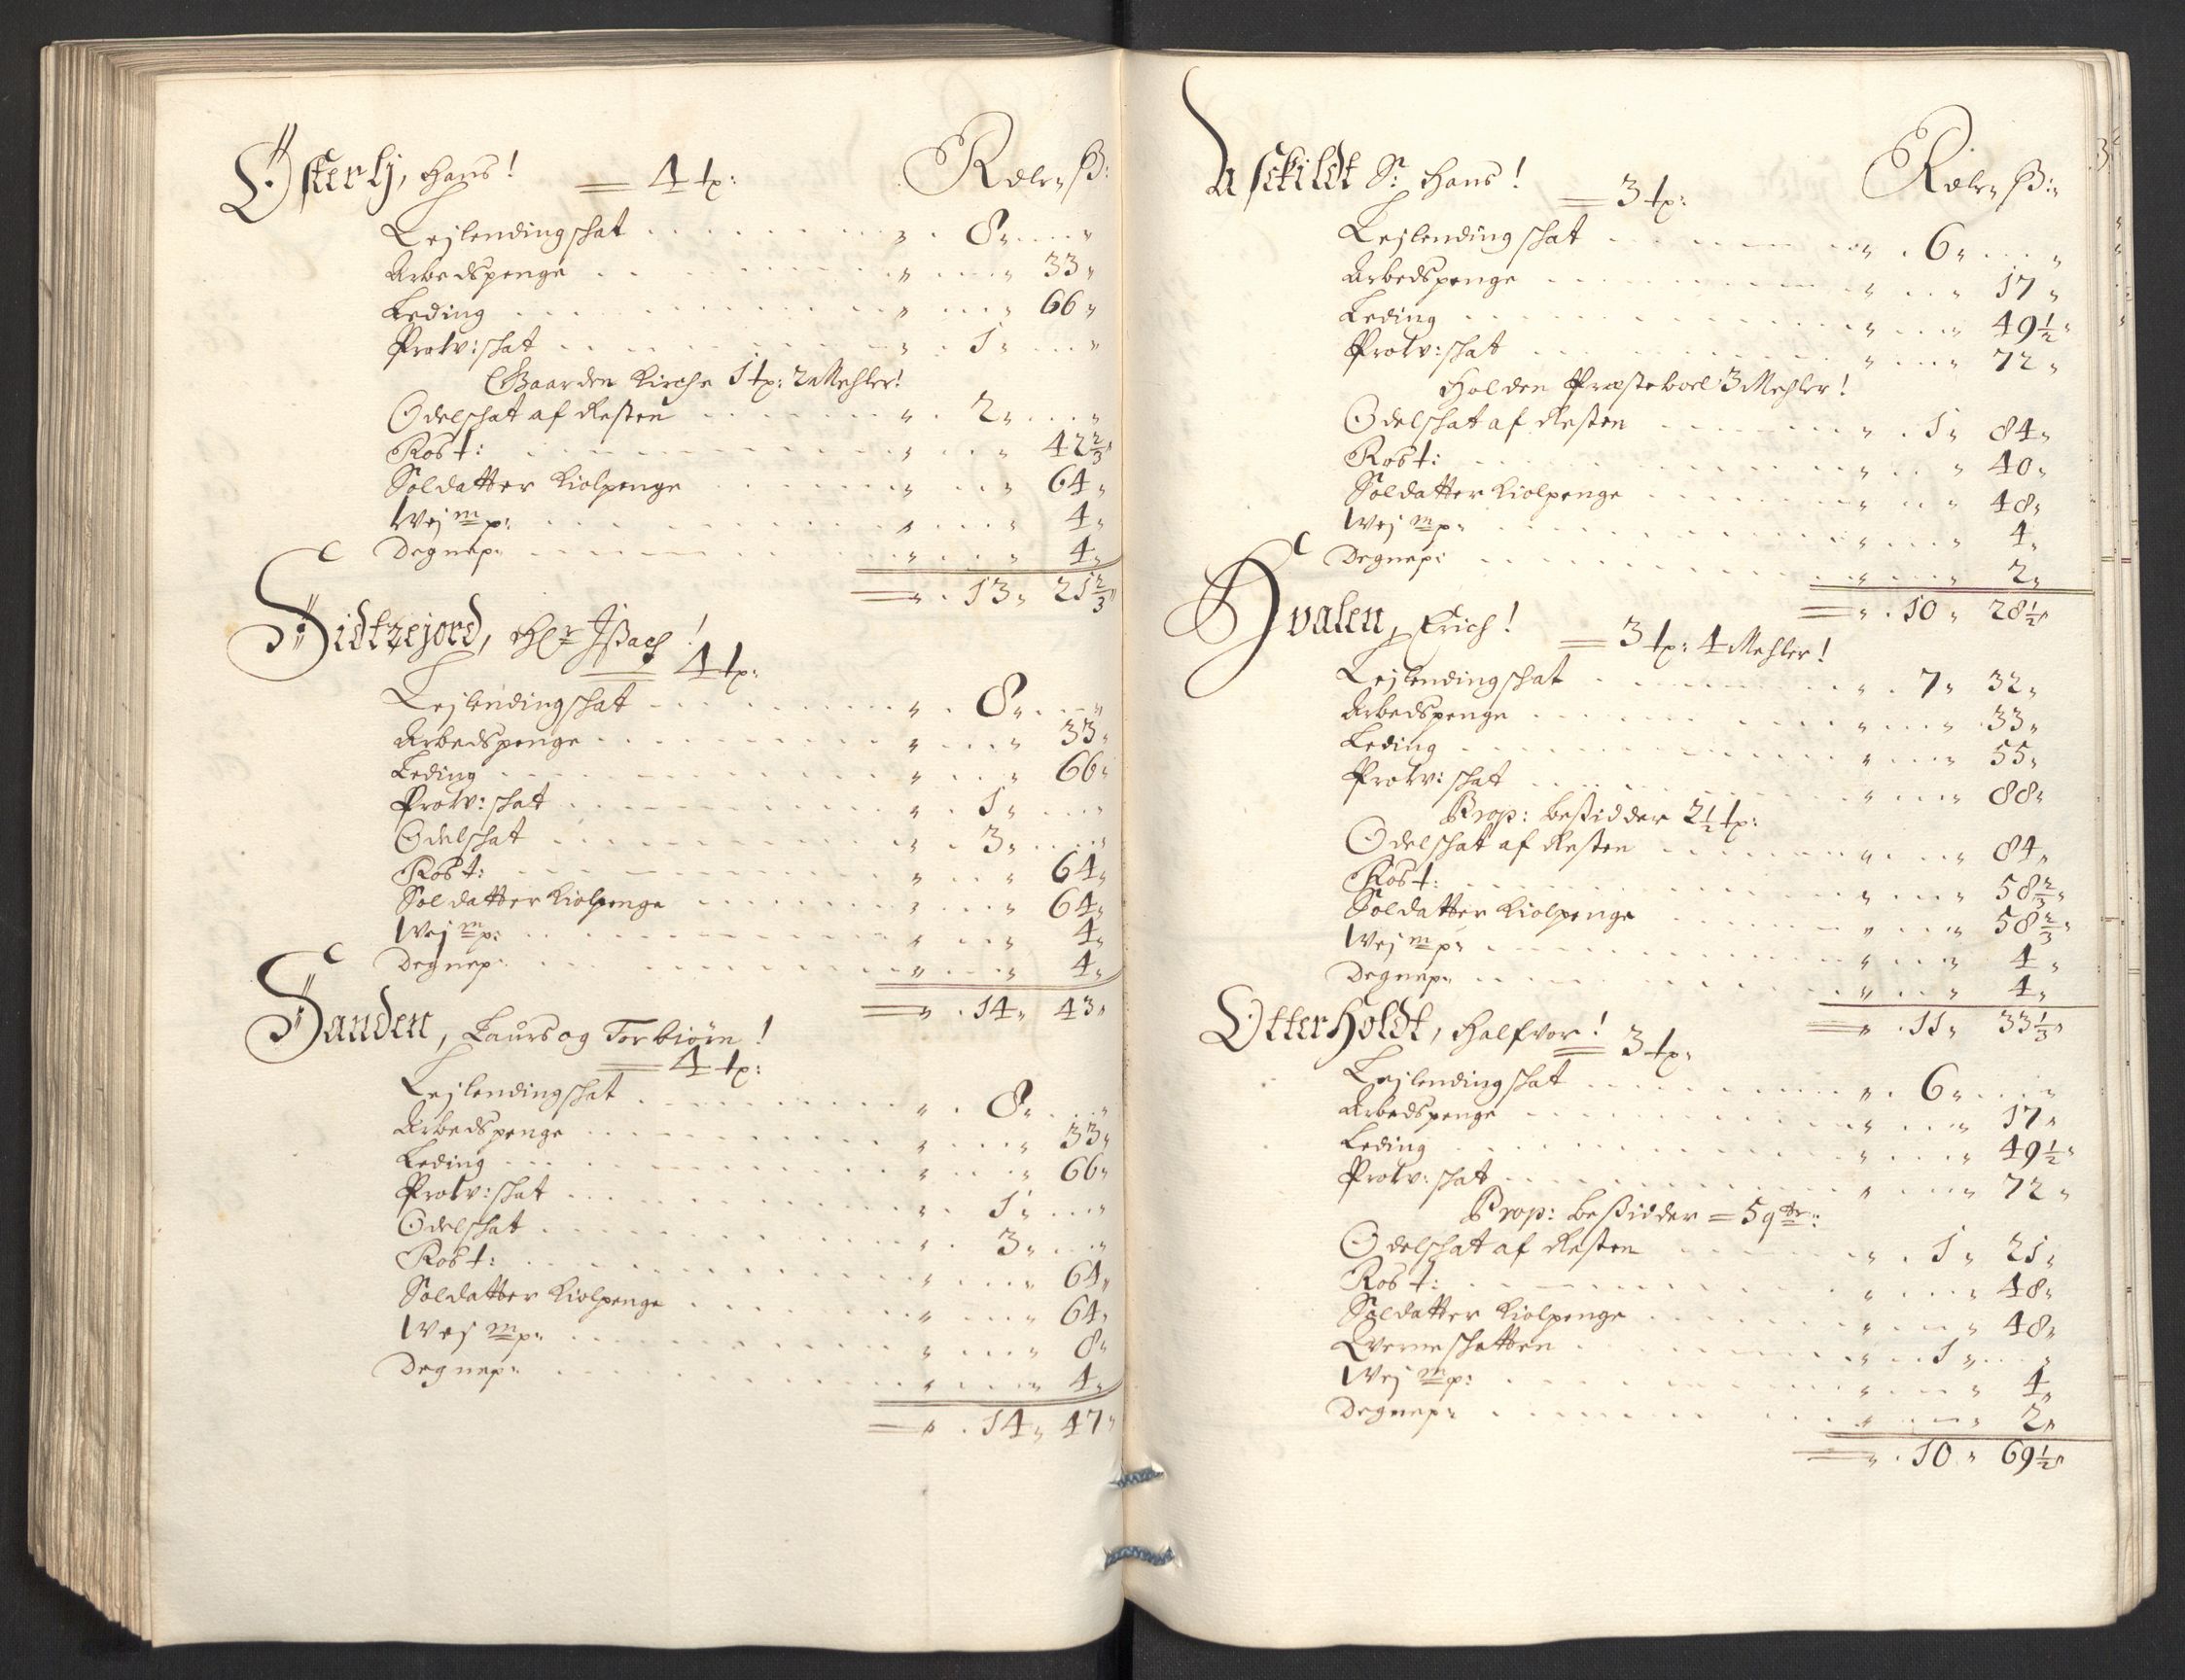 Østerlj, Hans! = 4 tp: Rdlr ß:
Lejlendingschat 8
Arbedspenge 33
Leding 66
Protv: schat 1
Gaarden Kirche 1 tp: 2 Mehler!
Odelschat af Resten 2
Ros t: 42 2/3
Soldatter Kiolpenge 64
Wej mp: 4
Degnep: 4
= 13 21 2/3
Sidtzejord, Hr Jßach! = 4 tp:
Lejlendingschat 8
Arbedspenge 33
Leding 66
Protv: schat 1
Odelschat 3
Ros t: 64
Soldatter Kiolpenge 64
Wej mp: 4
Degnep: 4
= 14 43
Sanden, Laurs og Torbiørn!
= 4 tp:
Lejlendingschat 8
Arbedspenge 33
Leding 66
Protv: schat 1
Odelschat 3
Ros t: 64
Soldatter Kiolpenge 64
Wej mp: 8
Degnep: 4
= 14 47
Asckildt Sr: Hans! = 3 tp: Rdlr ß:
Lejlendingschat 6
Arbedspenge 17
Leding 49 1/2
Protv: schat 72
Holden Præsteboel 3 Mehler!
Odelschat af Resten 1 84
Ros t: 40
Soldatter Kiolpenge 48
Wej mp: 4
Degnep: 2
= 10 28 1/2
Hvalen, Erich! = 3 tp: 4 Mehler!
Lejlendingschat 7 32
Arbedspenge 33
Leding 55
Protv: schat 88
Prop: beßidder 2 1/2 tp:
Odelschat af Resten 84
Ros t: 58 2/3
Soldatter Kiolpenge 58 2/3
Wej mp: 4
Degnep: 4
= 11 33 1/3
Otterholdt, Halfvor! = 3 tp:
Lejlendingschat 6
Arbedspenge 17
Leding 49 1/2
Protv: schat 72
Prop: beßidder = 5 qtr:
Odelschat af Resten 1 21
Ros t: 48
Soldatter Kiolpenge 48
Qverneschatten 1
Wej mp: 4
Degnep: 2
= 10 69 1/2